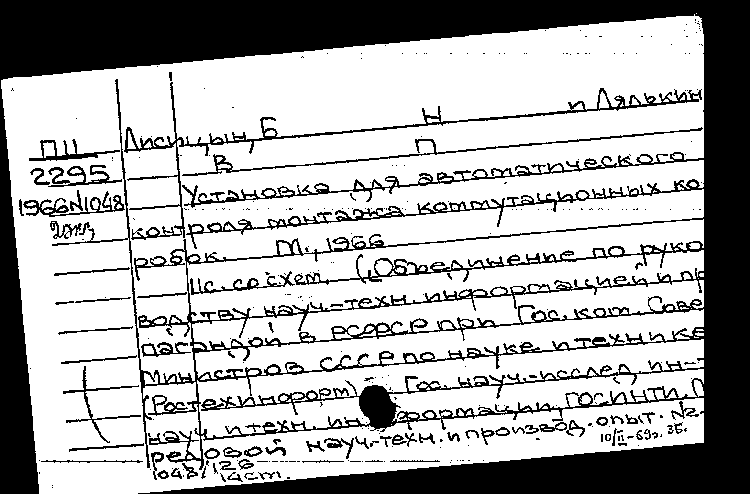 П11
2295
1966N1048
2экз
Лисицын, Б Н и Лялькин
В П
Установка для автоматического
контроля монтажа коммутационных ко
робок. М., 1966
11с. со схем. (Объединение по руко
водству науч.-техн. информацией и пр
пагандой в РСФСР при Гос. ком. Сове
Министров СССР по науке и технике
(Ростехинформ) Гос. науч.-исслед. ин-т
науч. и техн. информации, ГОСИНТИ, П
редовой науч.-техн. и производ. опыт. №2-
1048/126 10/II-69г. ЗЕ.
14cm.